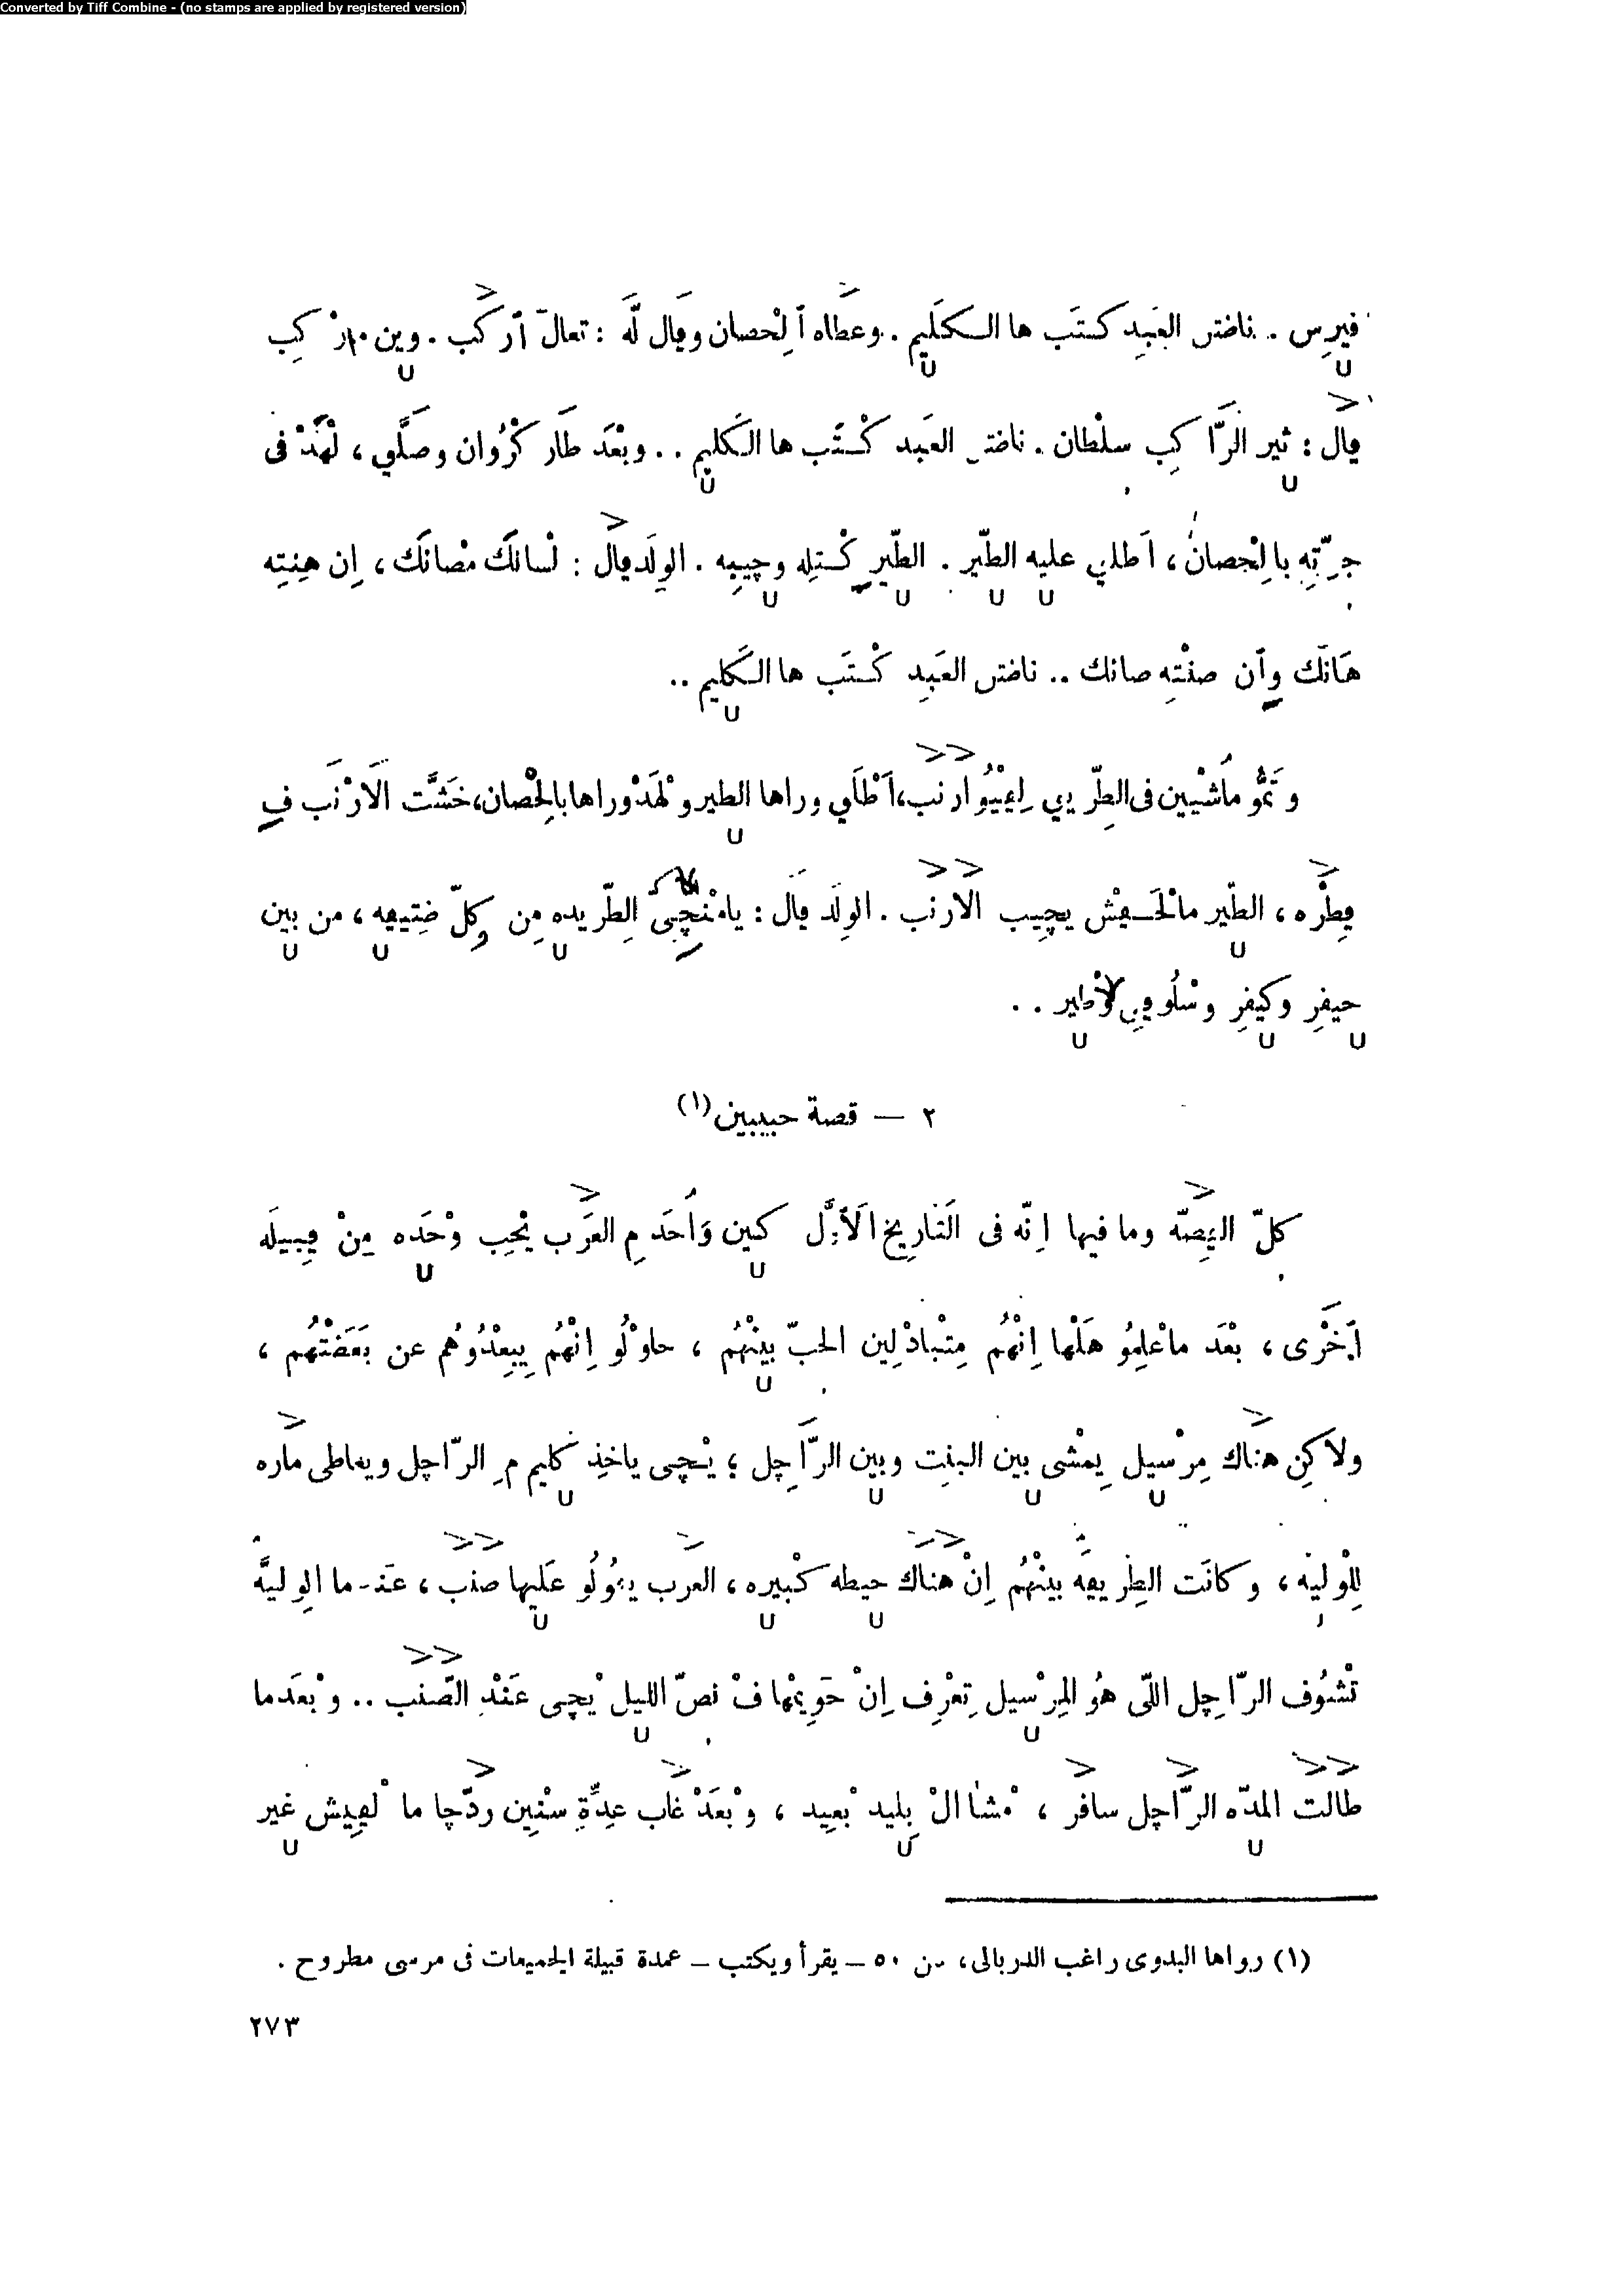 Converted by Tiff Combine - (no stamps are applied by registered version)
فيرِس . ناضتر العَبِد كتَب ها الكَلَيم . وعطاه اَلِحْصان وڢال لَّه : تعالَ اَركَب . وين رْكِب
ڢال : ثير الرَّاكِب سلْطان . ناضتر العَبد كْتَب ها الكَليم .. وبْعَد طار كْرُوان وصلَّي ، لْهَدْ فى
جرِّتِه بالِحْصان ، اَطلي عليه الطّير . الطّير كْتله وچيبه . الولَد ڢال : لْسانَك مْصانَك ، إن هِنتِه
هَانَك وإن صنْتِه صانك .. ناضتر العَبِد كْتَب ها الكَليم ..
وتَمُّو مَاشْيين فى الطِّريڢ لِڢْيُو ارنب، اَطْلَي وراها الطير ولْهَدْ وراها بالِحْصان، خَشَّت الَارْنَب ف
ڢِطْره ، الطّير مالْحَڢش يچِيب الارنب . الولَد ڢَال : يا منْچِّى الِطّريده مِن كِلّ ضِتيڢه ، من بين
حيفرِ وكيفرِ وسْلُوڢي لاطير ..
٢ — قصة حبيبين (١)
كلّ الڢِصّه وما فيها اِنّه فى التَاريخ الَاوَّل كين وَاحَد مِ العَرَب يْحِب وْحَده مِنْ ڢِبيلَه
اُخْرى ، بعْدَ ماعْلِمُو هَلْها اِنْهُم مِتْبادْلِين الحبّ بينْهُم ، حاوْلُو اِنْهُم يِبعْدُوهُم عن بَعَضْتْهُم ،
ولاكِن هناك مِرْسيل يِمْشى بين البنِت وبين الرَّاچِل ؛ يْچى ياخِذ كليم مِ الرّاچل ويعاطى ماره
لِلْوليّه ، وكانَت الطِريڢه بينْهُم اِنْ هناك حيطه كْبيره ، العَرب يڢُولُو عَليها صنب ، عند ما الوِليّه
تْشُوف الرّاچِل اللّى هُو المِرْسيل تِعْرِف اِنْ حَوِيڢْها فْ نصّ الليل يْچى عَنْد الصّنب .. وبْعَدما
طالت المدّه الرَّاچل سافر ، مْشا الْ بِليد بْعيِد ، وبْعَدْ غاب عِدِّة سْنِين ردّ چا ما لْڢِيش غير
(١) رواها البدوى راغب الدربالى، سن ٥٠ — يقرأ ويكتب — عمدة قبيلة الجميعات فى مرسى مطروح .
٢٧٣